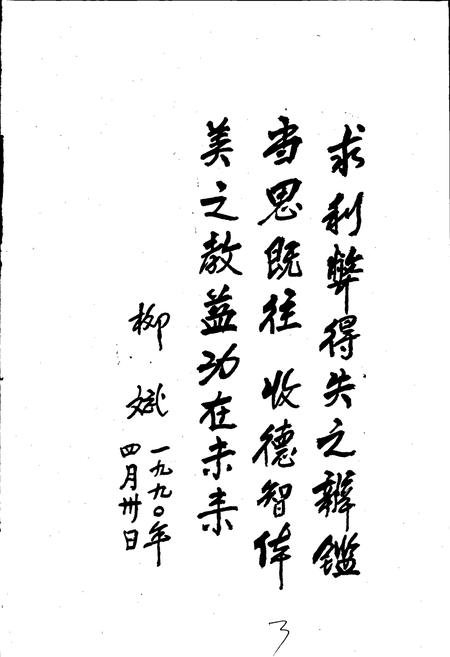 求利弊得失之辨鑑
当思既往 收德智体
美之教益功在未来
柳斌
一九九〇年
四月卅日
3